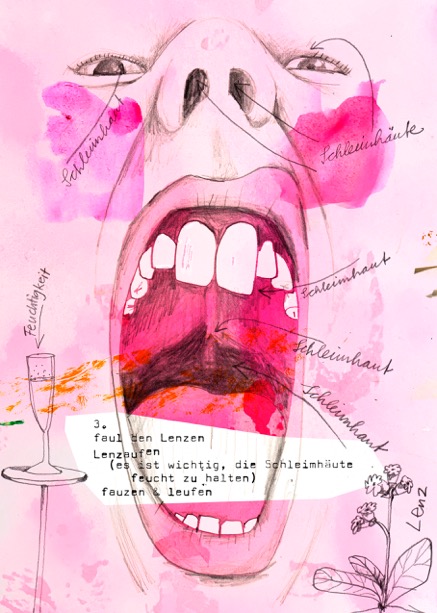 Schleimhaut
Schleimhäute
Schleimhaut
Feuchtigkeit
Schleimhaut
Schleimhaut
3.
faul den Lenzen
Lenzaufen
(es ist wichtig, die Schleimhäute
feucht zu halten)
fauzen & leufen
Lenz